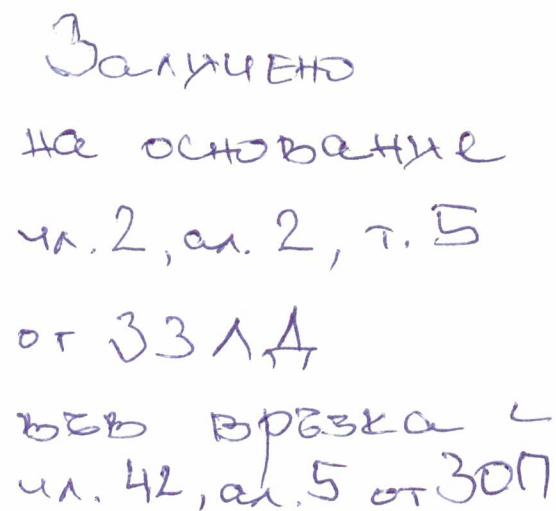 Залучено
на основание
чл. 2, ал. 2, т. 5
от ЗЗЛД
във връзка с
чл. 42, ал. 5 от ЗОП